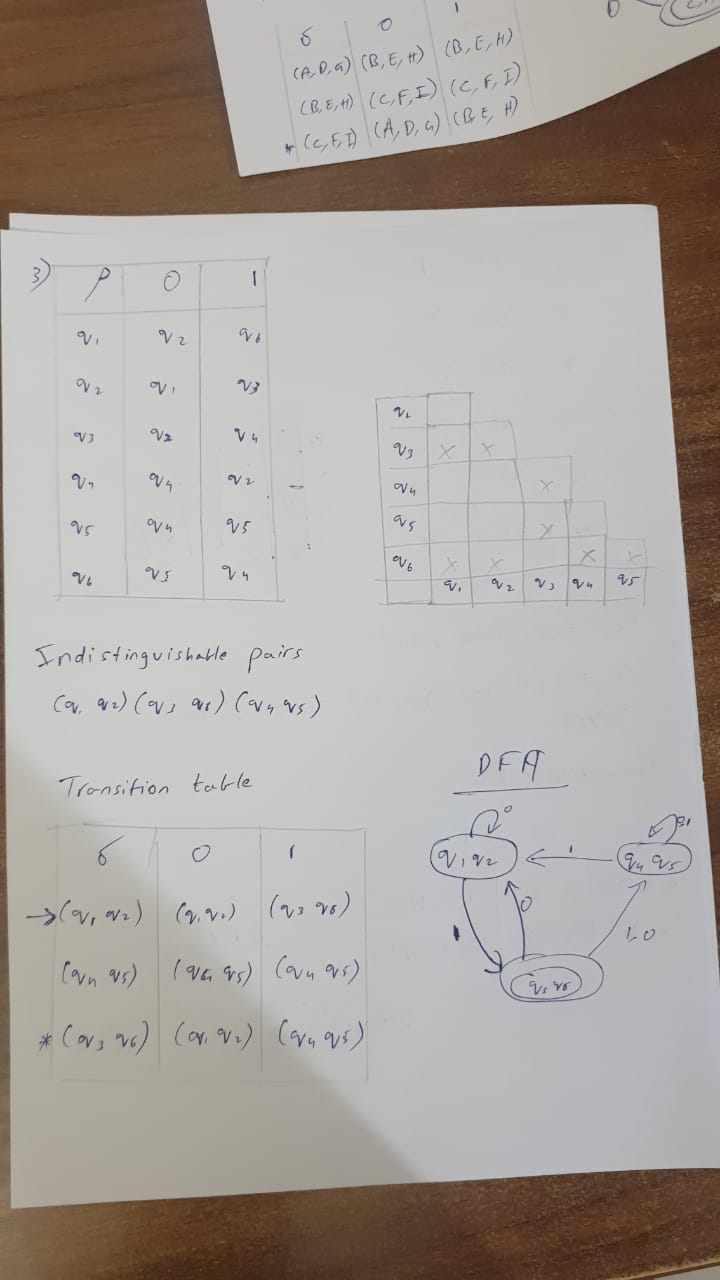 δ 0 1
(A,D,G) (B,E,H) (B,E,H)
(B,E,H) (C,F,I) (C,F,I)
* (C,F,I) (A,D,G) (B,E,H)
3)
P 0 1
q1 q2 q6
q2 q1 q3
q3 q2 q4
q4 q4 q2
q5 q4 q5
q6 q5 q4
q2
q3 X X
q4 X
q5 X
q6 X X X X
q1 q2 q3 q4 q5
Indistinguishable pairs
(q1 q2) (q3 q6) (q4 q5)
Transition table
δ 0 1
→(q1 q2) (q1 q2) (q3 q6)
(q4 q5) (q4 q5) (q4 q5)
* (q3 q6) (q1 q2) (q4 q5)
DFA
0
q1 q2
1
q4 q5
1
0
1,0
q3 q6